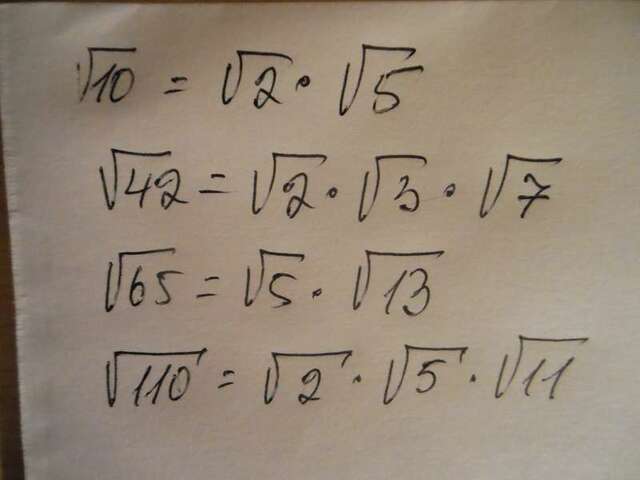 √10 = √2 · √5
√42 = √2 · √3 · √7
√65 = √5 · √13
√110 = √2 · √5 · √11